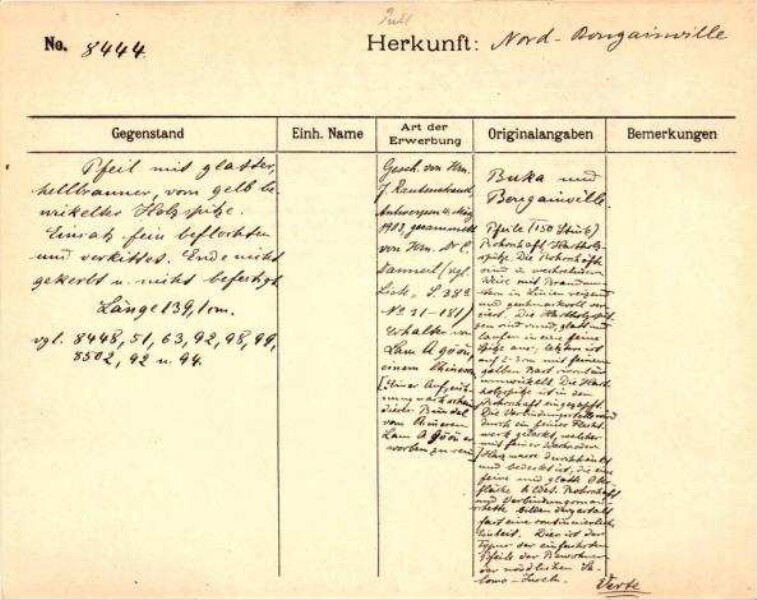 No. 8444
Herkunft: Nord-Bougainville
Gegenstand
Einh. Name
Art der Erwerbung
Originalangaben
Bemerkungen
Pfeil mit glatter,
hellbrauner, vorn gelb be-
wickelter Holzspitze.
Einsatz fein beflochten
und verkittet. Ende nicht
gekerbt u. nicht befestigt.
Länge 139,1 cm.
vgl. 8448, 51, 63, 92, 98, 99,
8502, 92 u. 94.
Gesch. von Hrn.
J.
Antwerpen u. März
1908, gesammelt
von Hrn. Dr C.
(vgl.
S. 38
No 21-181)
Erhalten von
Lam A göön,
einem Chinesen
dieser Bündel
vom Chinesen
Lam A Göön er-
worben zu sein]
Buka und
Bougainville.
Pfeile (150 Stück)
Rohrschaft Hartholz-
spitze. Die Rohrschäfte
sind in
Weise mit Brandmu-
stern in Linien
und geschmackvoll ver-
ziert. Die Hartholzspit-
zen sind rund, glatt und
laufen in eine feine
Spitze aus, letztere ist
auf 2-3 cm mit feinem
gelben Bast
umwickelt. Die Hart-
holzspitze ist in den
Rohrschaft eingezapft.
Die Verbindungsstelle wird
durch ein feines Flecht-
werk gedeckt, welches
mit feiner
Harzmasse
und bedeckt ist, die eine
feine und glatte Ober-
fläche bildet. Rohrschaft
und
bilden dergestalt
fast eine continuierliche
Einheit. Dies ist der
Typus der einfachsten
Pfeile der Bewohner
der nördlichen Sa-
lomo-Inseln.
Verte